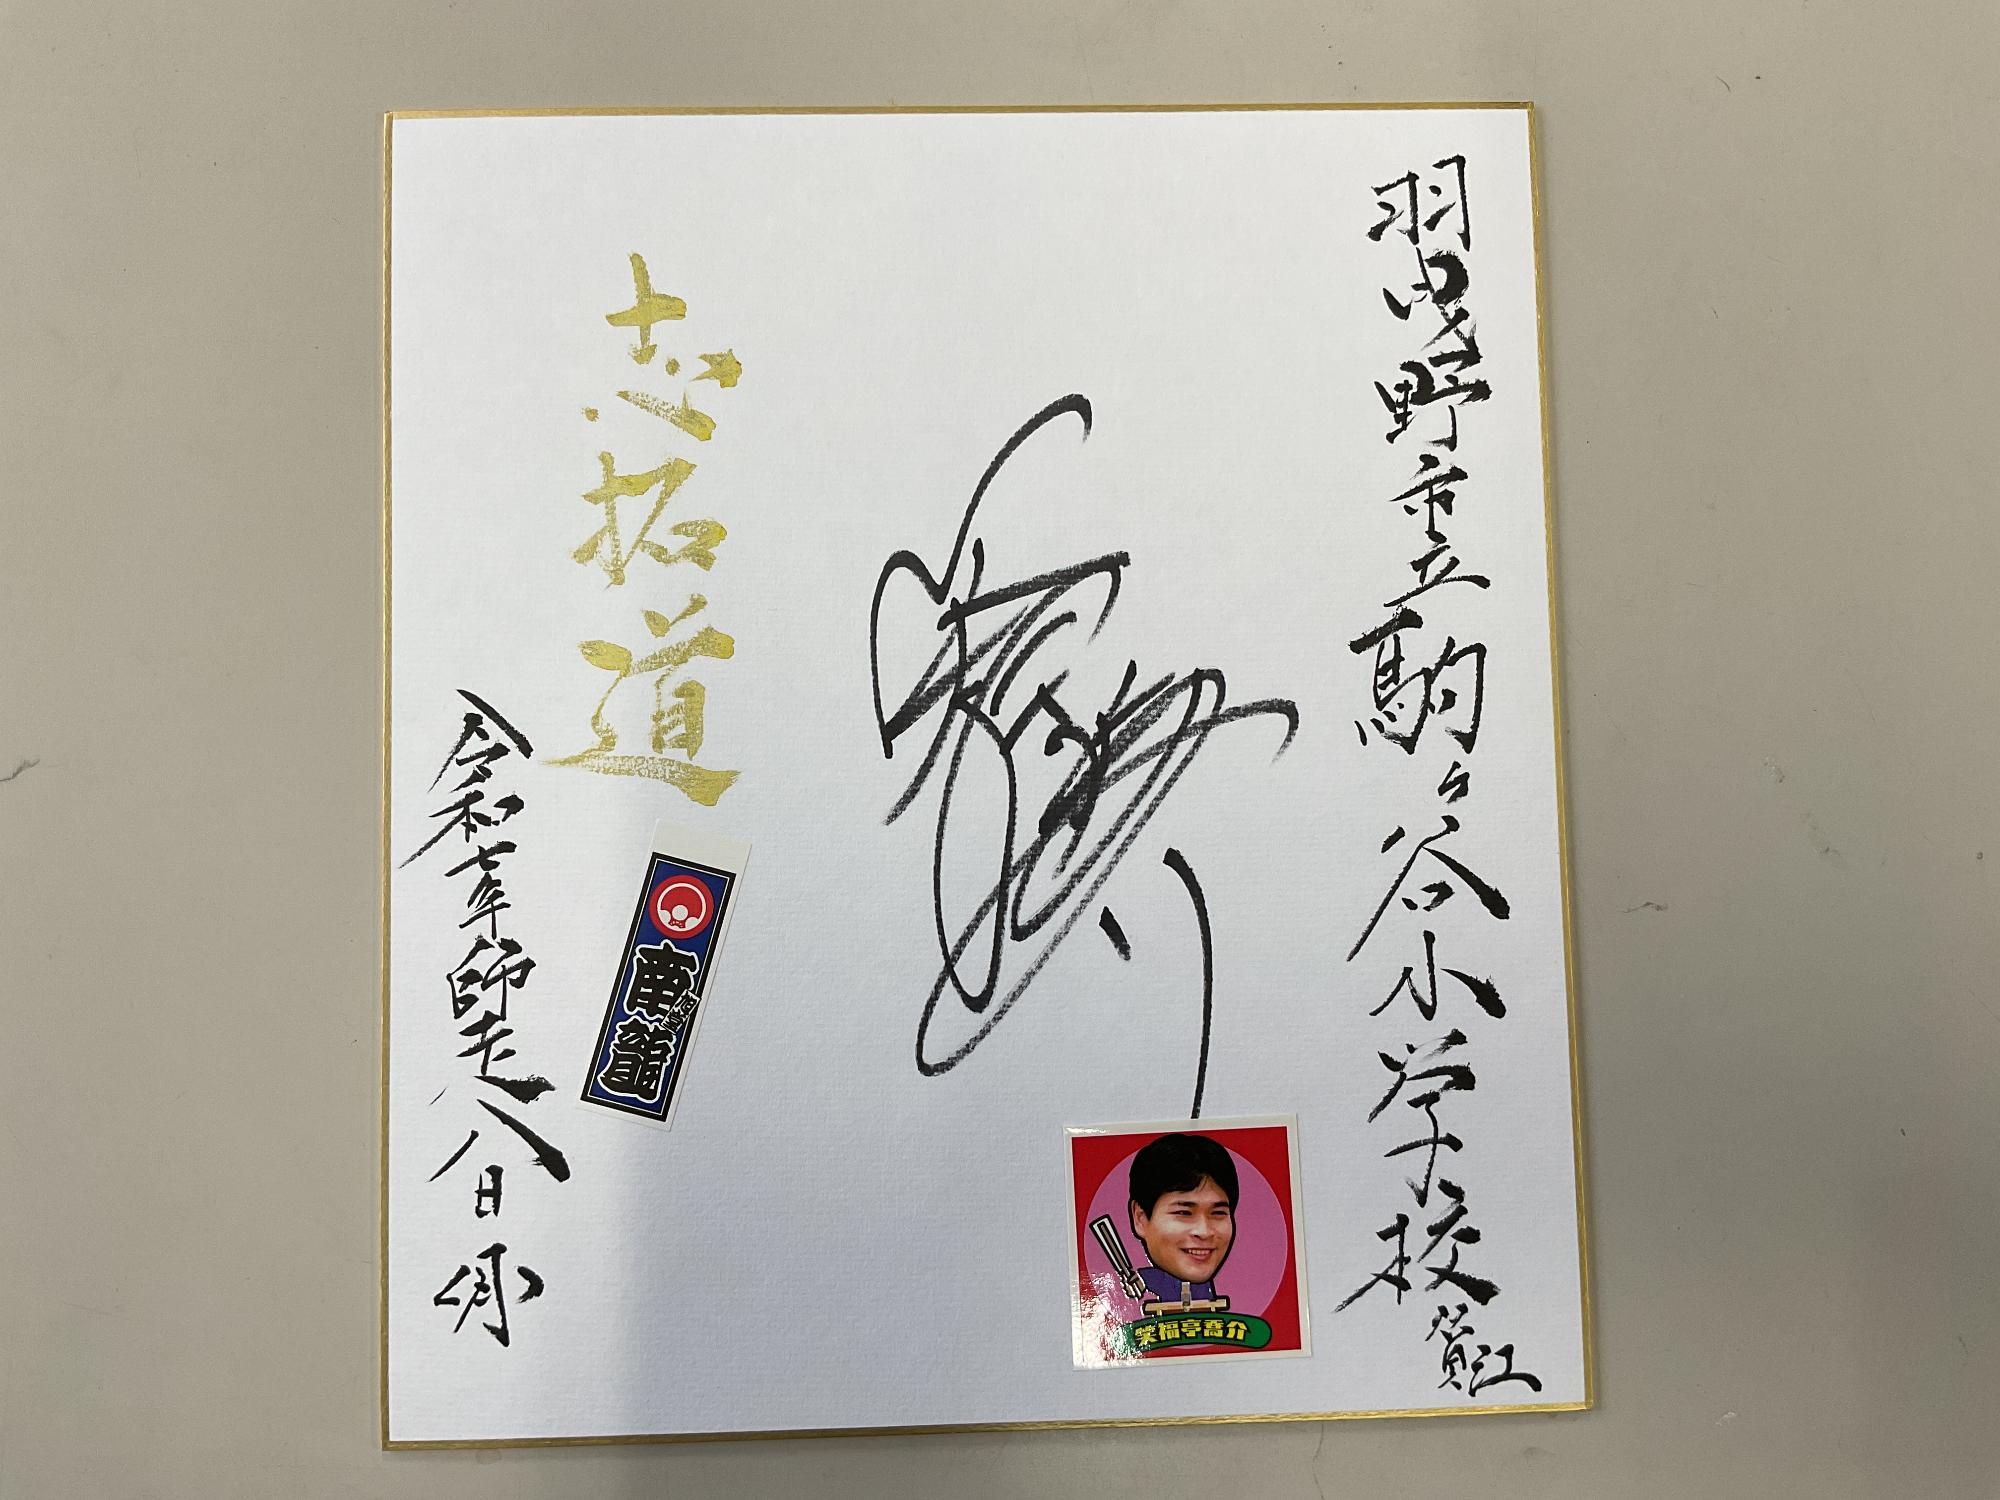 羽曳野市立駒ヶ谷小学校
志拓道
令和七年師走八日
旭堂
南龍
笑福亭喬介